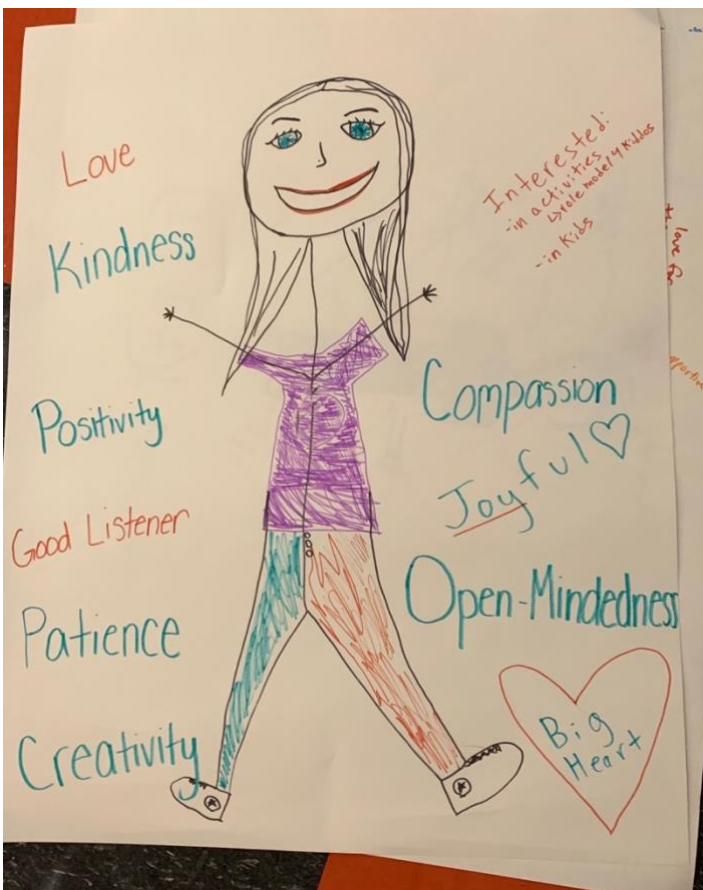 Love
Kindness
Positivity
Good Listener
Patience
Creativity
Interested:
-in activities
↳role model 4 Kiddos
-in Kids
Compassion
Joyful♡
Open-Mindedness
Big
Heart
love for